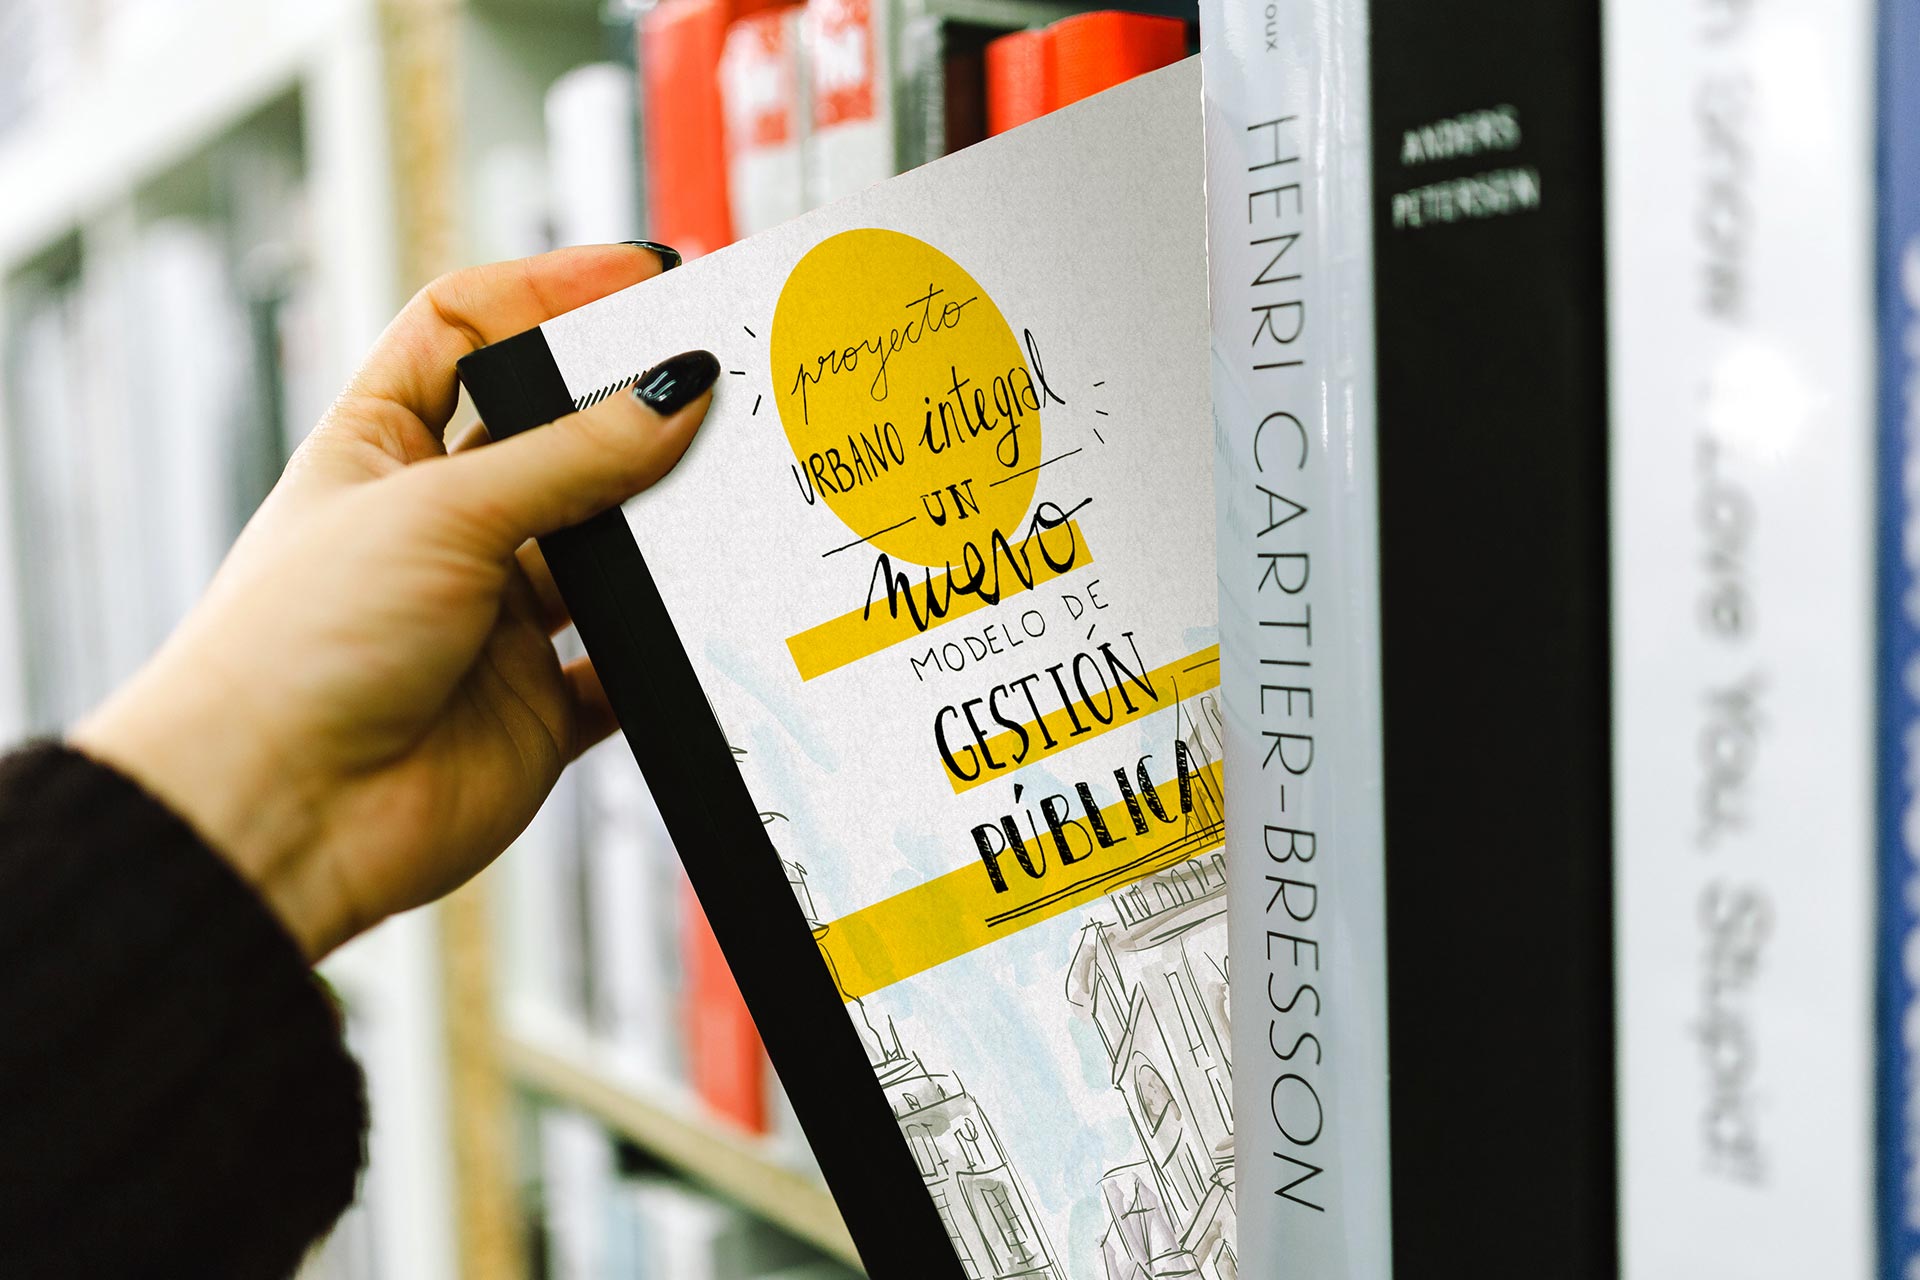 proyecto
URBANO integral
UN
nuevo
MODELO DE
GESTIÓN
PÚBLICA
HENRI CARTIER-BRESSON
ANDERS
PETERSEN
I Love You, Stupid!